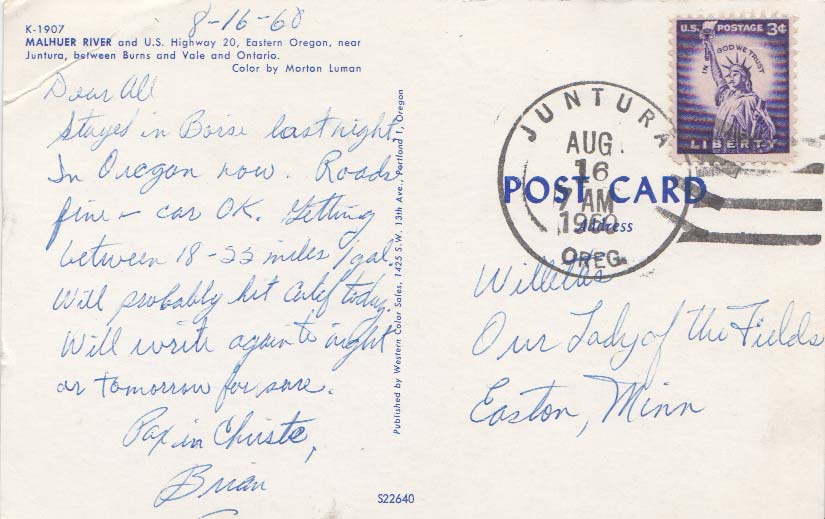 8-16-60
K-1907
MALHUER RIVER and U.S. Highway 20, Eastern Oregon, near
Juntura, between Burns and Vale and Ontario.
Color by Morton Luman
Dear All
Stayed in Boise last night.
In Oregon now. Roads
fine - car OK. Getting
between 18-22 miles/gal.
Will probably hit Calif today.
Will write again to night
or tomorrow for sure.
Pax in Christe,
Brian
Published by Western Color Sales, 1425 S.W. 13th Ave., Portland 1, Oregon
S22640
U.S. POSTAGE 3¢
IN GOD WE TRUST
LIBERTY
JUNTURA
AUG
16
7 AM
1960
OREG.
POST CARD
Address
Our Lady of the Fields
Easton, Minn